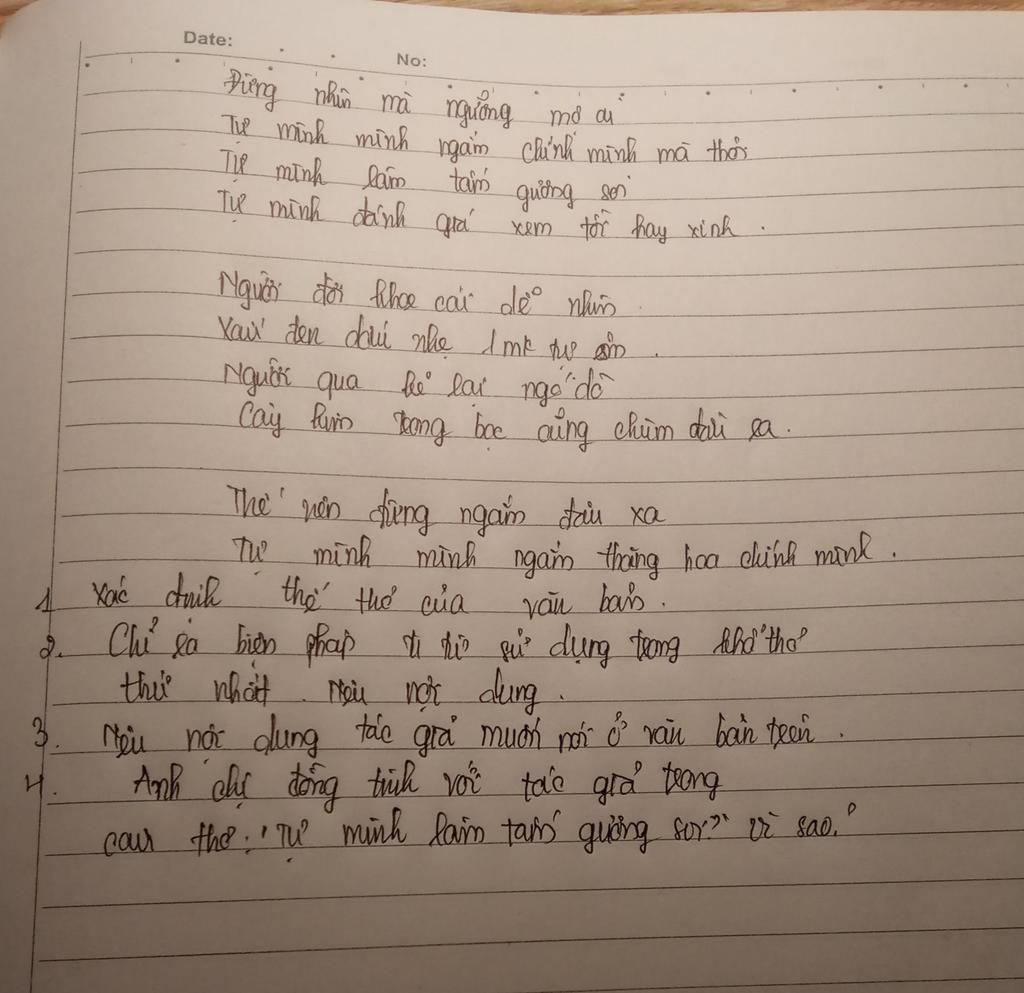 Date:
No:
Đừng nhìn mà ngưỡng mộ ai
Tự mình mình ngắm chính mình mà thôi
Tự mình làm tấm gương soi
Tự mình đánh giá xem tồi hay xinh.
Người đời khoe cái dễ nhìn
Xấu đen chui nhẹ 1 mk tự
Người qua kẻ lại ngó dò
Cây kim trong bọc cũng chùm đấu ra.
Thế nên đừng ngắm đâu xa
Tự mình mình ngắm thăng hoa chính mình.
1 Xác định thể thơ của văn bản.
2. Chỉ ra biện pháp tu từ sử dụng trong khổ thơ
thứ nhất. Nêu nội dung.
3. Nêu nội dung tác giả muốn nói ở văn bản trên.
4. Anh chị đồng tình với tác giả trong
câu thơ: "Tự mình làm tấm gương soi" vì sao?